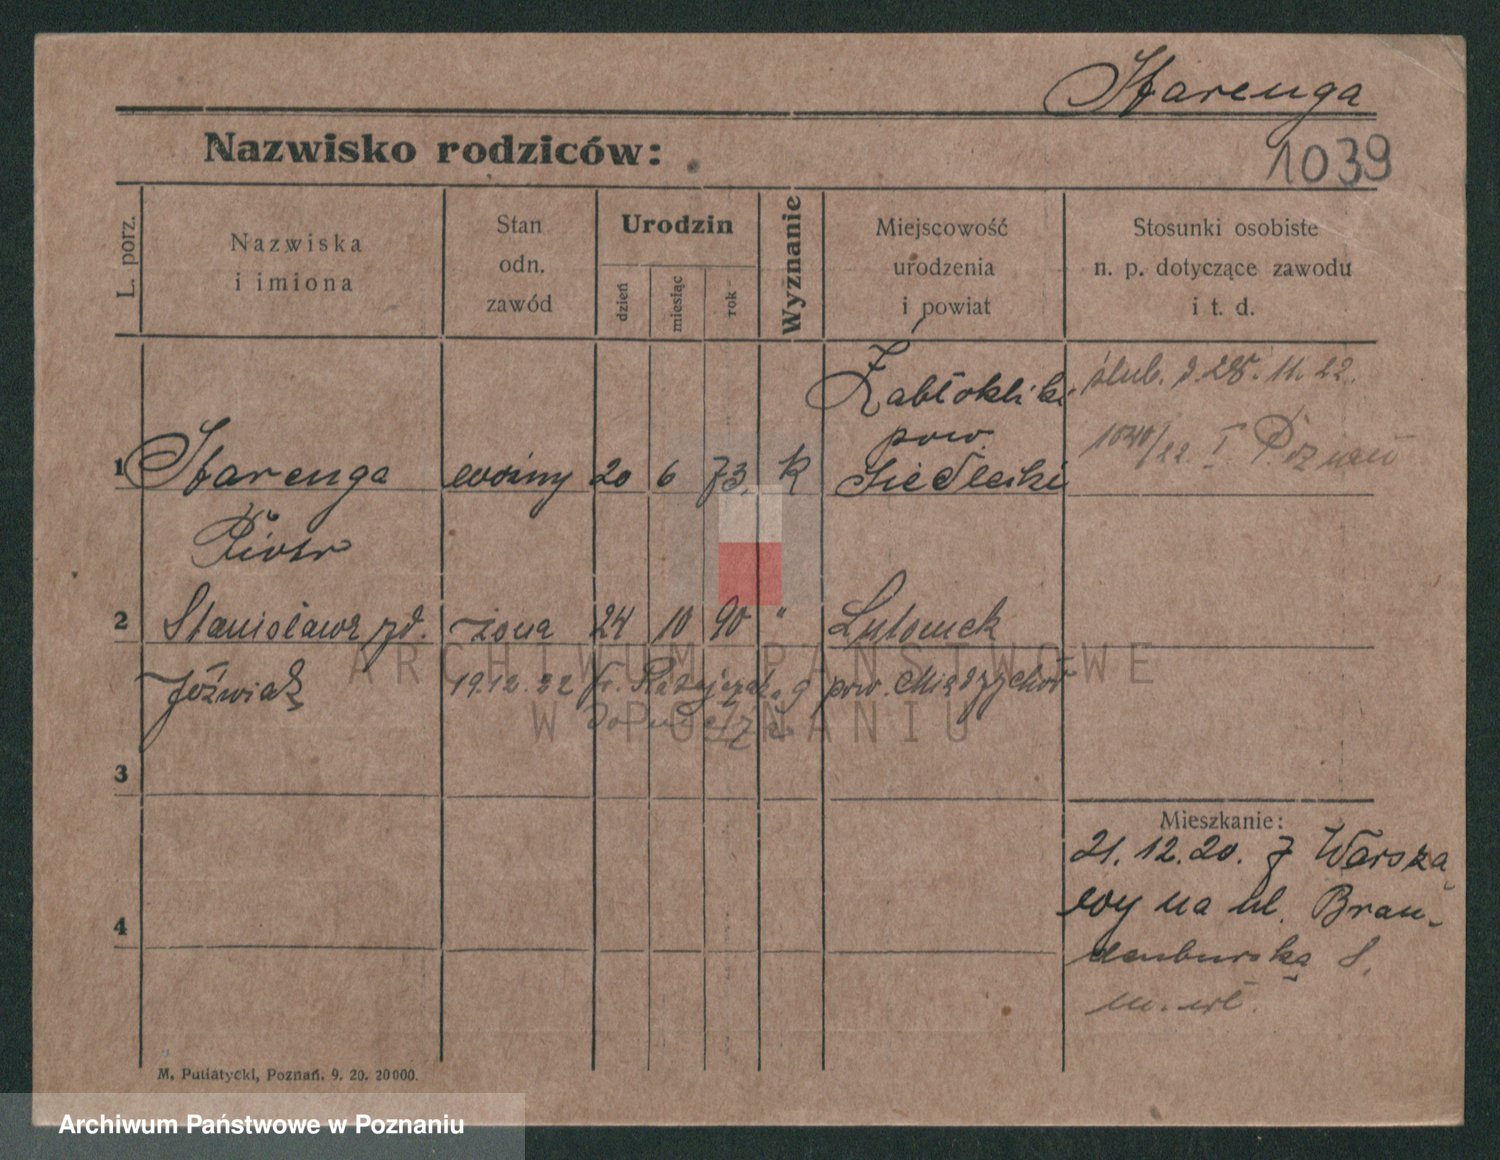 Starenga
Nazwisko rodziców:
1039
L. porz.
Nazwiska
i imiona
Stan
odn.
zawód
Urodzin
dzień
miesiąc
rok
Wyznanie
Miejscowość
urodzenia
i powiat
Stosunki osobiste
n. p. dotyczące zawodu
i t. d.
1
Starenga
Piotr
woźny
20
6
73.
k
Żabłokliki
pow.
Siedlecki
ślub. d. 28. 11. 22.
1040/22. I Poznań
2
Stanisława zd.
Jóźwiak
żona
24
10
90
"
Lutomek
pow. Międzychód
19.12.32
3
4
Mieszkanie:
21. 12. 20. z Warsza
wy na ul. Bran-
denburska 8.
M. Putiatycki, Poznań. 9. 20. 20000.
ARCHIWUM PAŃSTWOWE
W POZNANIU
Archiwum Państwowe w Poznaniu